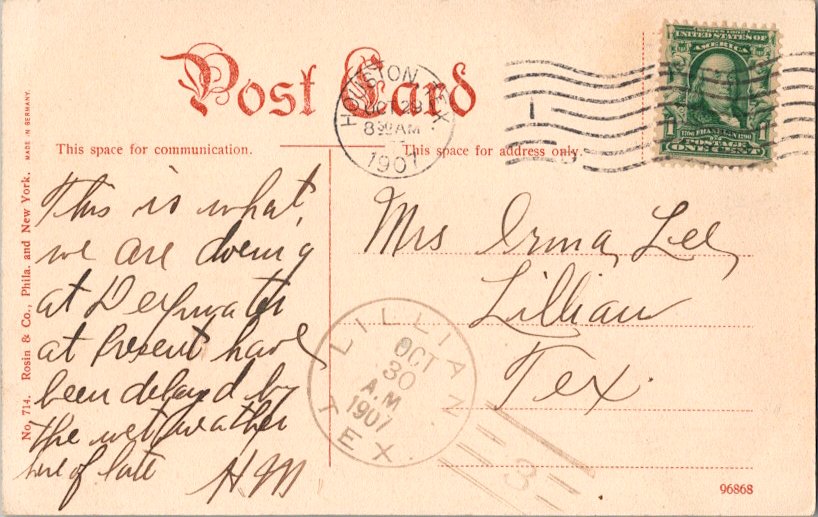 Post Card
HOUSTON, TEX.
OCT 29
8 30 AM
1907
SERIES 1902
UNITED STATES OF
AMERICA
1 1
FRANKLIN
POSTAGE
ONE CENT
This space for communication.
This space for address only.
This is what
we are doing
at Deepwater
at Present have
been delayed by
the wet weather
here of late
HM
Mrs Irma Lee,
Lillian
Tex.
LILLIAN
OCT
30
A.M.
1907
TEX.
3
No. 714. Rosin & Co., Phila. and New York. MADE IN GERMANY.
96868